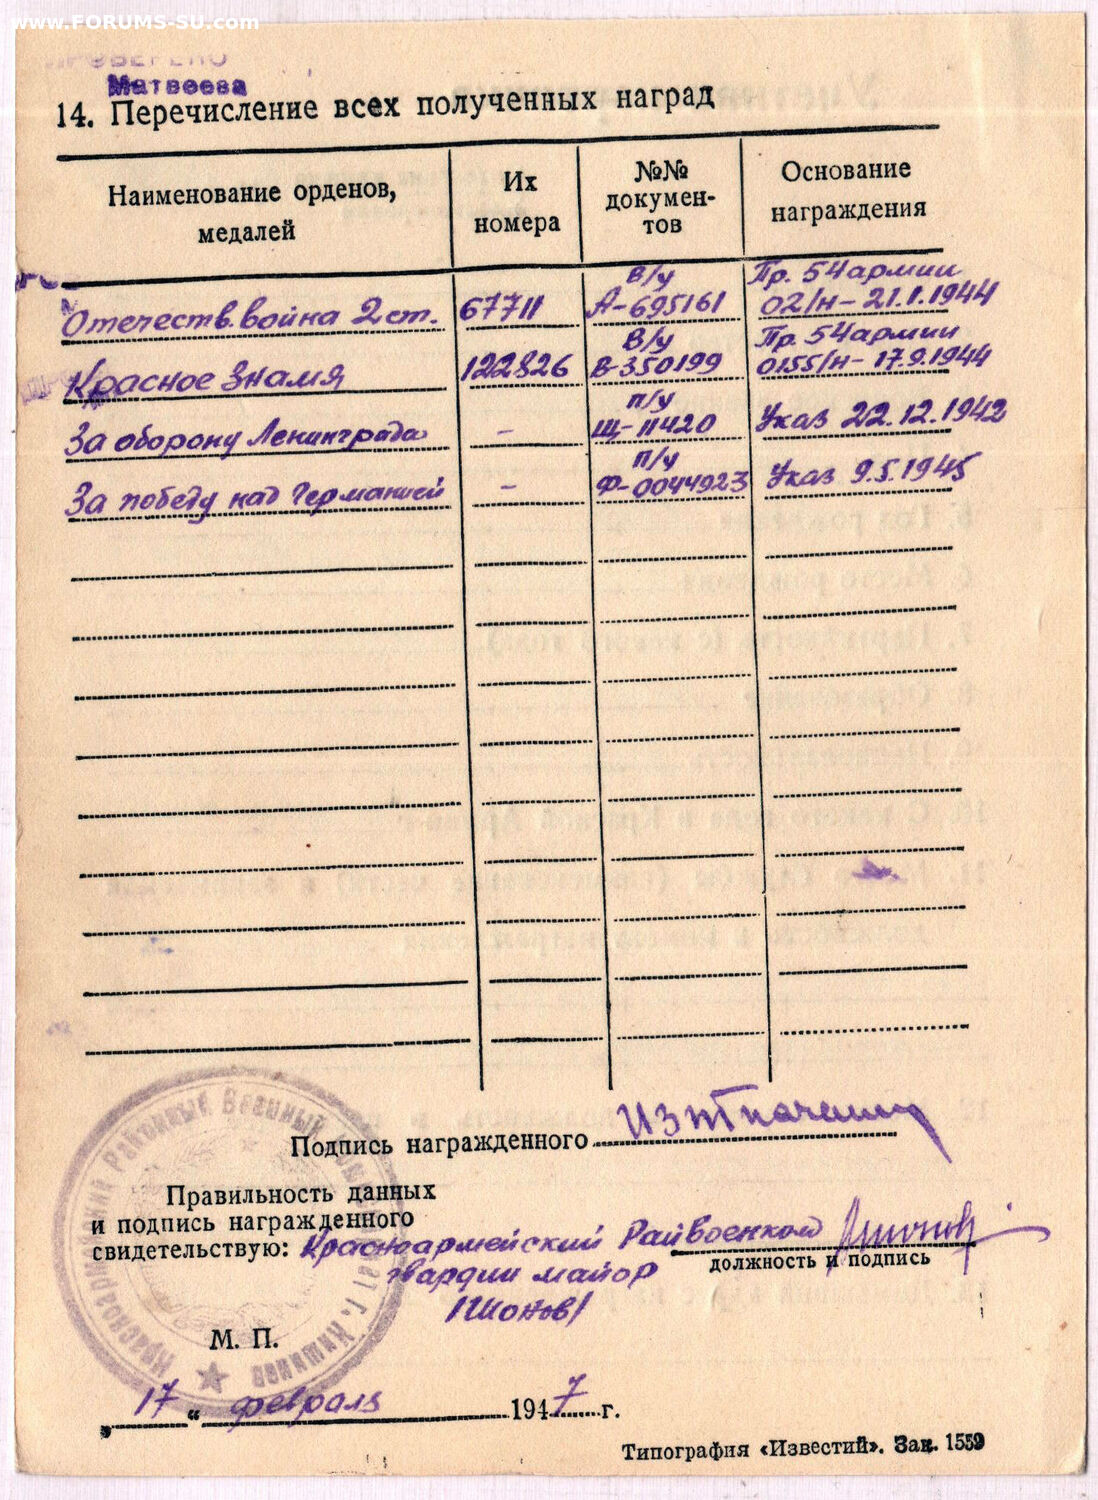 www.FORUMS-SU.com
ПРОВЕРЕНО
Матвеева
14. Перечисление всех полученных наград
Наименование орденов, медалей
Их номера
№№ докумен-тов
Основание награждения
Отечеств. война 2 ст. 67711 В/у А-695161 Пр. 54 армии 02/н - 21.1.1944
Красное Знамя 122826 В/у В-350199 Пр. 54 армии 0155/н - 17.9.1944
За оборону Ленинграда - п/у Щ-11420 Указ 22.12.1942
За победу над Германией - п/у Ф-0044923 Указ 9.5.1945
Подпись награжденного
Правильность данных
и подпись награжденного
свидетельствую: Красноармейский Райвоенком
должность и подпись
гвардии майор
М. П.
Красноармейский Районный Военный г. Кишинев
„ 17 “ февраля 1947 г.
Типография «Известий». Зак. 1559